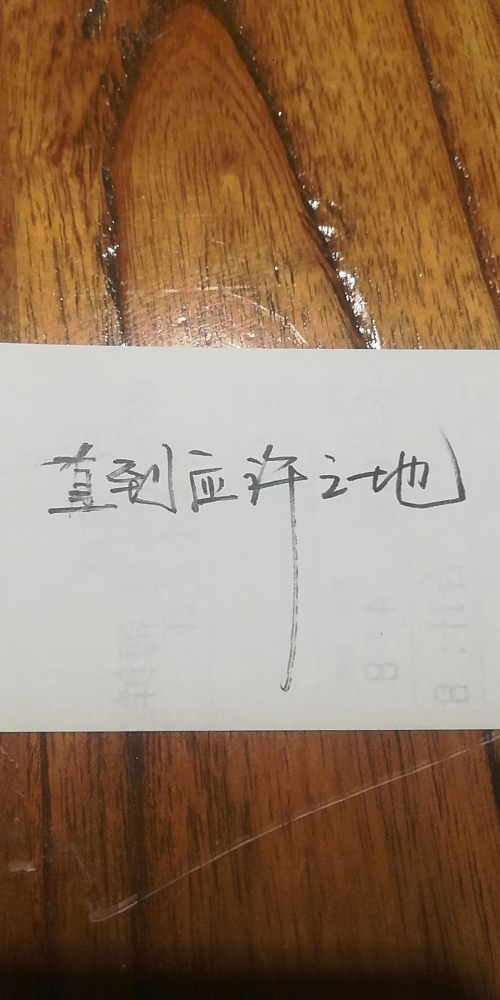 直到应许之地